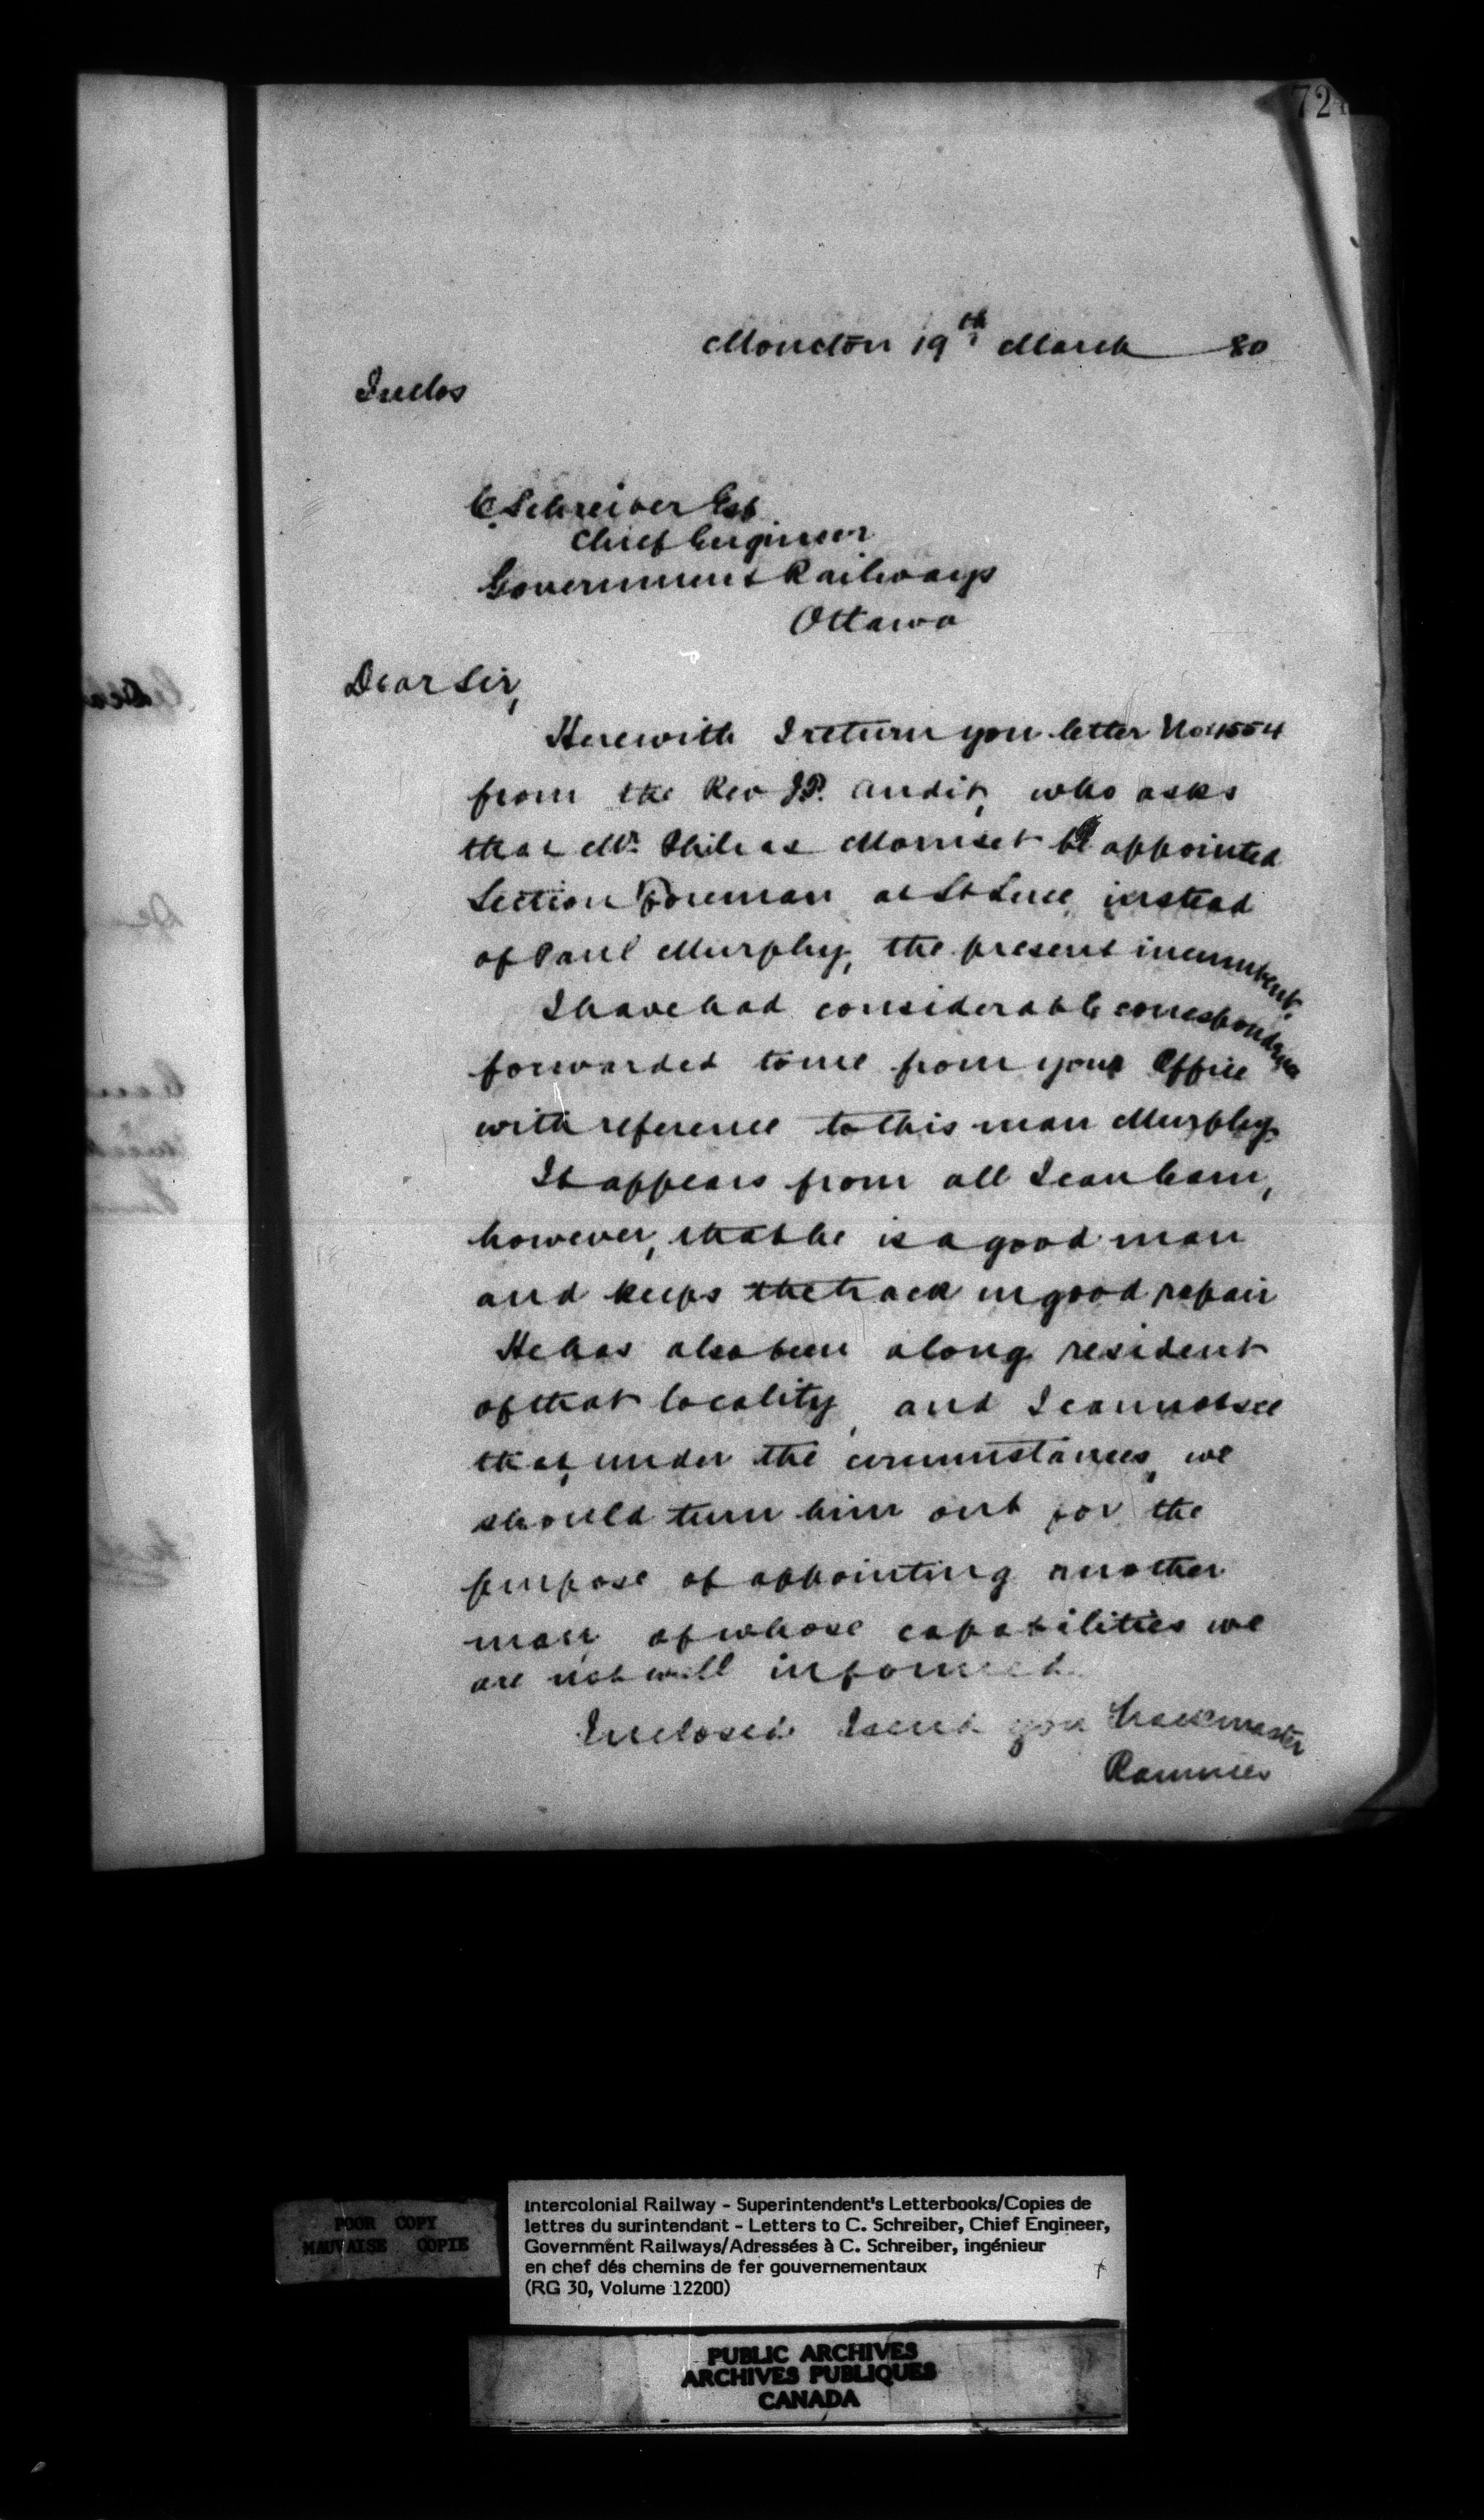 Moncton 19th March 80
Inclos
C Schreiber Esq
Chief Engineer
Government Railways
Ottawa
Dear Sir,
Herewith I return you letter No 4554
from the Rev J.P. Audit, who asks
that Mr. Phileas Morriset be appointed
Section Foreman at St Luce, instead
of Paul Murphy, the present incumbent.
I have had considerable correspondence
forwarded to me from your Office
with reference to this man Murphy.
It appears from all I can learn,
however, that he is a good man
and keeps the track in good repair
He has also been a long resident
of that locality, and I cannot see
that, under the circumstances, we
should turn him out for the
purpose of appointing another
man, of whose capabilities we
are not well informed.
Inclosed I send you Trackmaster
POOR COPY
MAUVAISE COPIE
Intercolonial Railway - Superintendent's Letterbooks/Copies de
lettres du surintendant - Letters to C. Schreiber, Chief Engineer,
Government Railways/Adressées à C. Schreiber, ingénieur
en chef dés chemins de fer gouvernementaux
(RG 30, Volume 12200)
PUBLIC ARCHIVES
ARCHIVES PUBLIQUES
CANADA